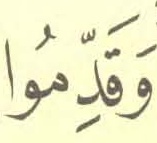 وَقَدِّمُوا